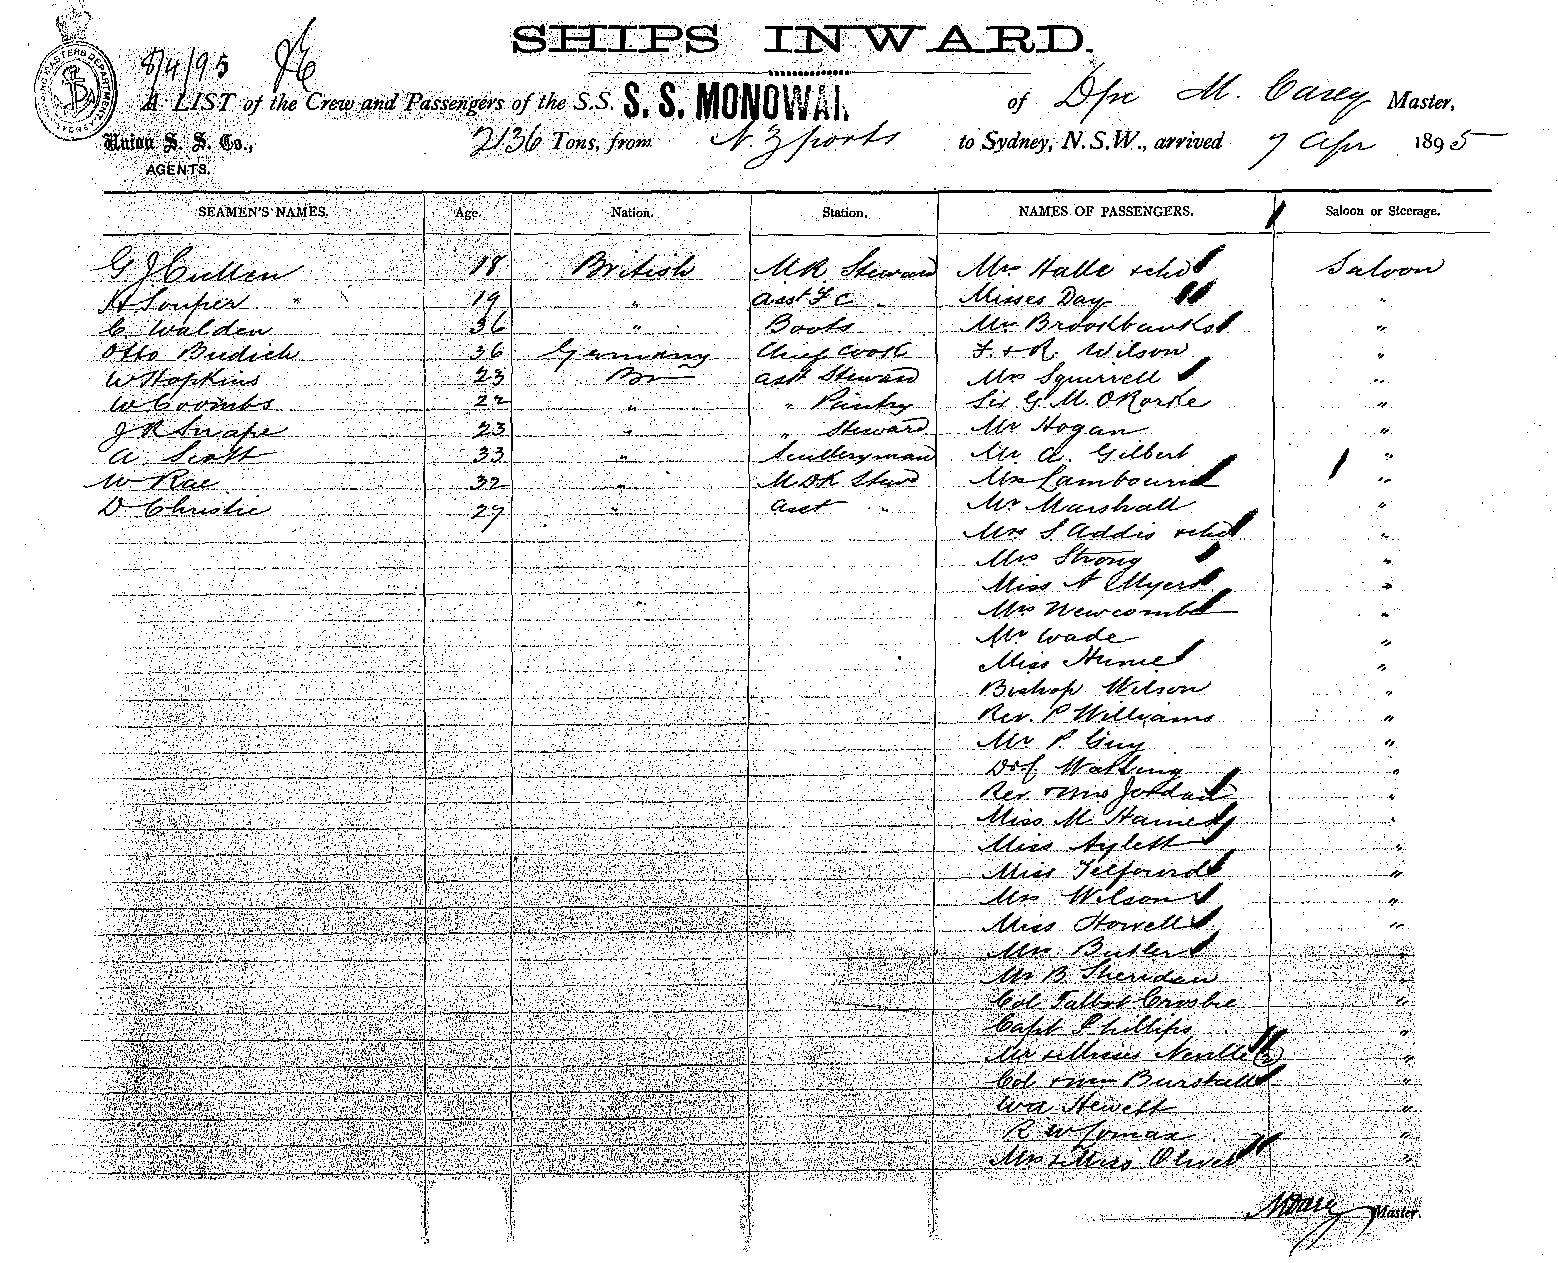 SHIPS INWARD.
8/4/95
A LIST of the Crew and Passengers of the S.S. S. S. MONOWAI. of M. Carey Master,
Union S. S. Co., 2136 Tons, from N. Z ports to Sydney, N.S.W., arrived 7 Apr 1895
AGENTS.
SEAMEN'S NAMES. Age. Nation. Station. NAMES OF PASSENGERS. Saloon or Steerage.
G J Cullen 18 British Steward Mrs Halle + chd Saloon
H Souper " 19 " asst Misses Day "
C. Walden 36 " Boots Mr Brookbanks "
Otto Budich 36 Germany Chief Cook F. + R. Wilson "
W Hopkins 23 Br asst Steward Mrs Squirrell "
W Coombs 22 " " Pantry Sir G. M. O'Rorke "
J R Snape 23 " " Steward Mr Hogan "
A Scott 33 " Scullery man Mr A. Gilbert "
W Rae 32 " Stewd Mrs Lambourn "
D Christie 27 " asst " Mr Marshall "
Mrs S Addis + chd "
Mrs Strong "
Miss A Myers "
Mrs Newcombe "
Mr Wade "
Miss Hume "
Bishop Wilson "
Rev. P Williams "
Mr P Guy "
Watling "
Rev + Mrs Jordan "
Miss M Hames "
Miss Aylett "
Miss Telford "
Mrs Wilson "
Miss Howell "
Mrs Butler "
Mr B Sheridan "
Col Talbot Crosbie "
Capt Phillips "
Mr + Misses Neville (2) "
Col + Mrs Burshall "
Wd Hewett "
R W Lomax "
Mrs + Miss Oliver "
M Carey Master.